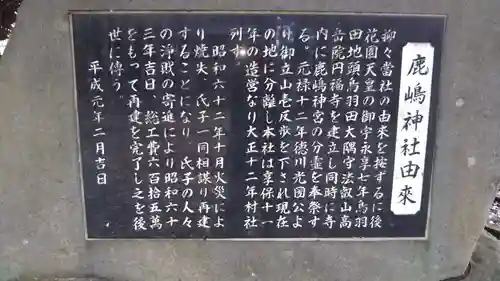 鹿嶋神社由來
抑々當社の由來を按ずるに後
花園天皇の御宇永享七年鳥羽
田地頭鳥羽田大隅守法叡山高
音院円福寺を建立し同時に寺
内に鹿嶋神宮の分霊を奉祭す
る。元禄十二年徳川光圀公よ
り御立山壱反歩を下され現在
の地に分離し本社は享保十一
年の造営なり大正十二年村社
に列す。
昭和六十二年十月火災によ
り焼失、氏子一同相謀り再建
することになり、氏子の人々
の浄財の寄進により昭和六十
三年吉日、総工費六百拾五萬
をもって再建を完了し之を後
世に傳う。
平成元年二月吉日